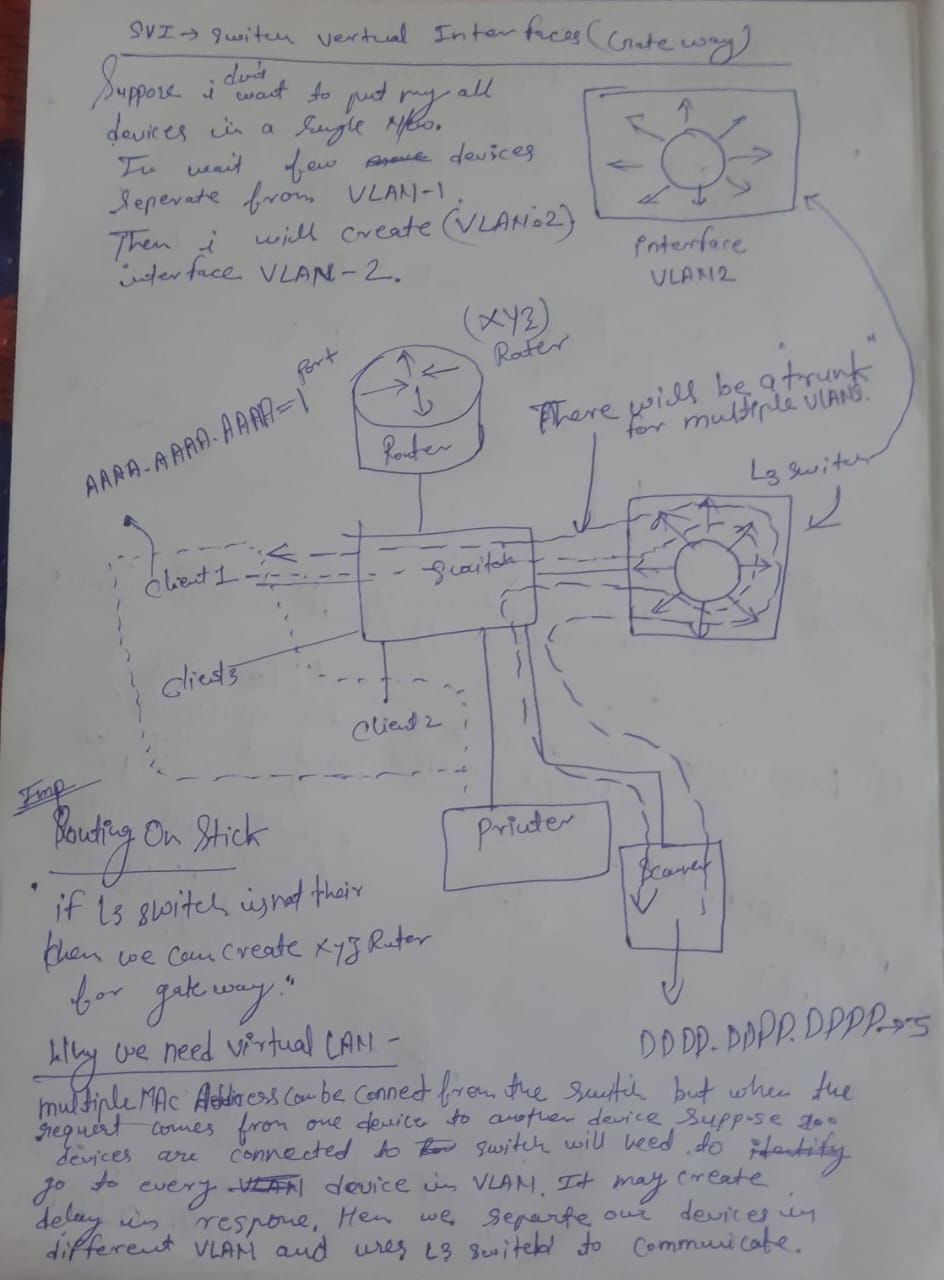 SVI → Switch vertual Interfaces (Gate way)
Suppose i don't want to put my all
devices in a single N/w.
I wait few devices
seperate from VLAN-1.
Then i will create (VLAN-2)
interface VLAN-2.
interface
VLAN2
(XYZ)
Router
port
AAAA-AAAA-AAAA=1
Router
There will be a "trunk"
for multiple VLANs.
L3 switch
Switch
Client 1
Client3
Client 2
Printer
Scanner
DDDD-DDDD-DDDD→5
Imp
Routing On Stick
• if L3 switch is not their
then we can create xyz Ruter
for gateway."
Why we need virtual LAN -
multiple MAC Address can be connect from the switch but when the
request comes from one device to another device suppose 200
devices are connected to switch will need to identify
go to every VLAN device in VLAN. It may create
delay in respone. Hen we separte our devices in
different VLAN and uses L3 switch to communicate.